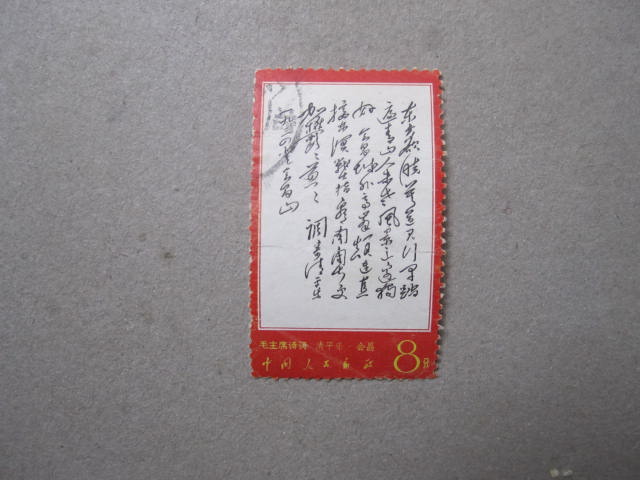 东方欲晓莫道君行早踏
遍青山人未老风景这边独
好会昌城外高峰颠连直
接东溟战士指看南粤更
加郁郁葱葱调寄清平乐
会昌山
毛主席诗词 清平乐·会昌
中国人民邮政 8分